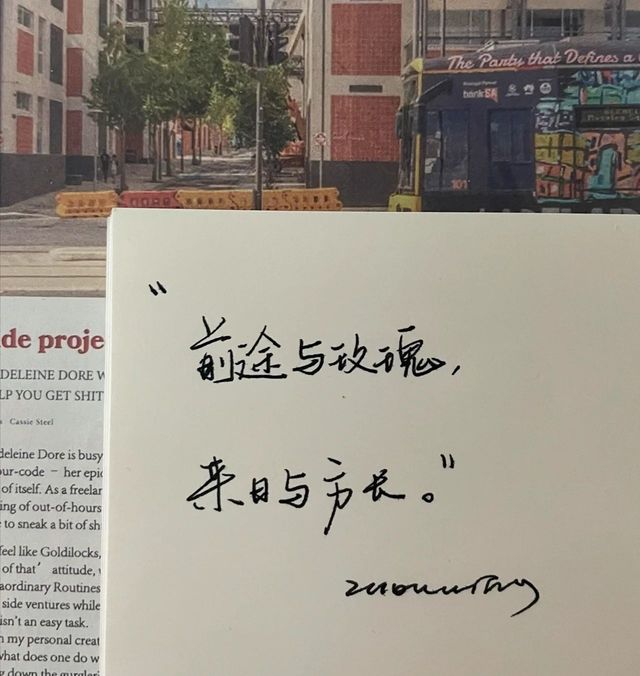 The Party that Defines a
bankSA
101
de proje
DELEINE DORE W
LP YOU GET SHIT
Cassie Steel
deleine Dore is busy
ur-code – her epic
of itself. As a freelan
ing of out-of-hours
to sneak a bit of sh
feel like Goldilocks,
of that' attitude,
aordinary Routines
side ventures while
isn't an easy task.
n my personal creat
what does one do w
“前途与玫瑰，
来日与方长。”